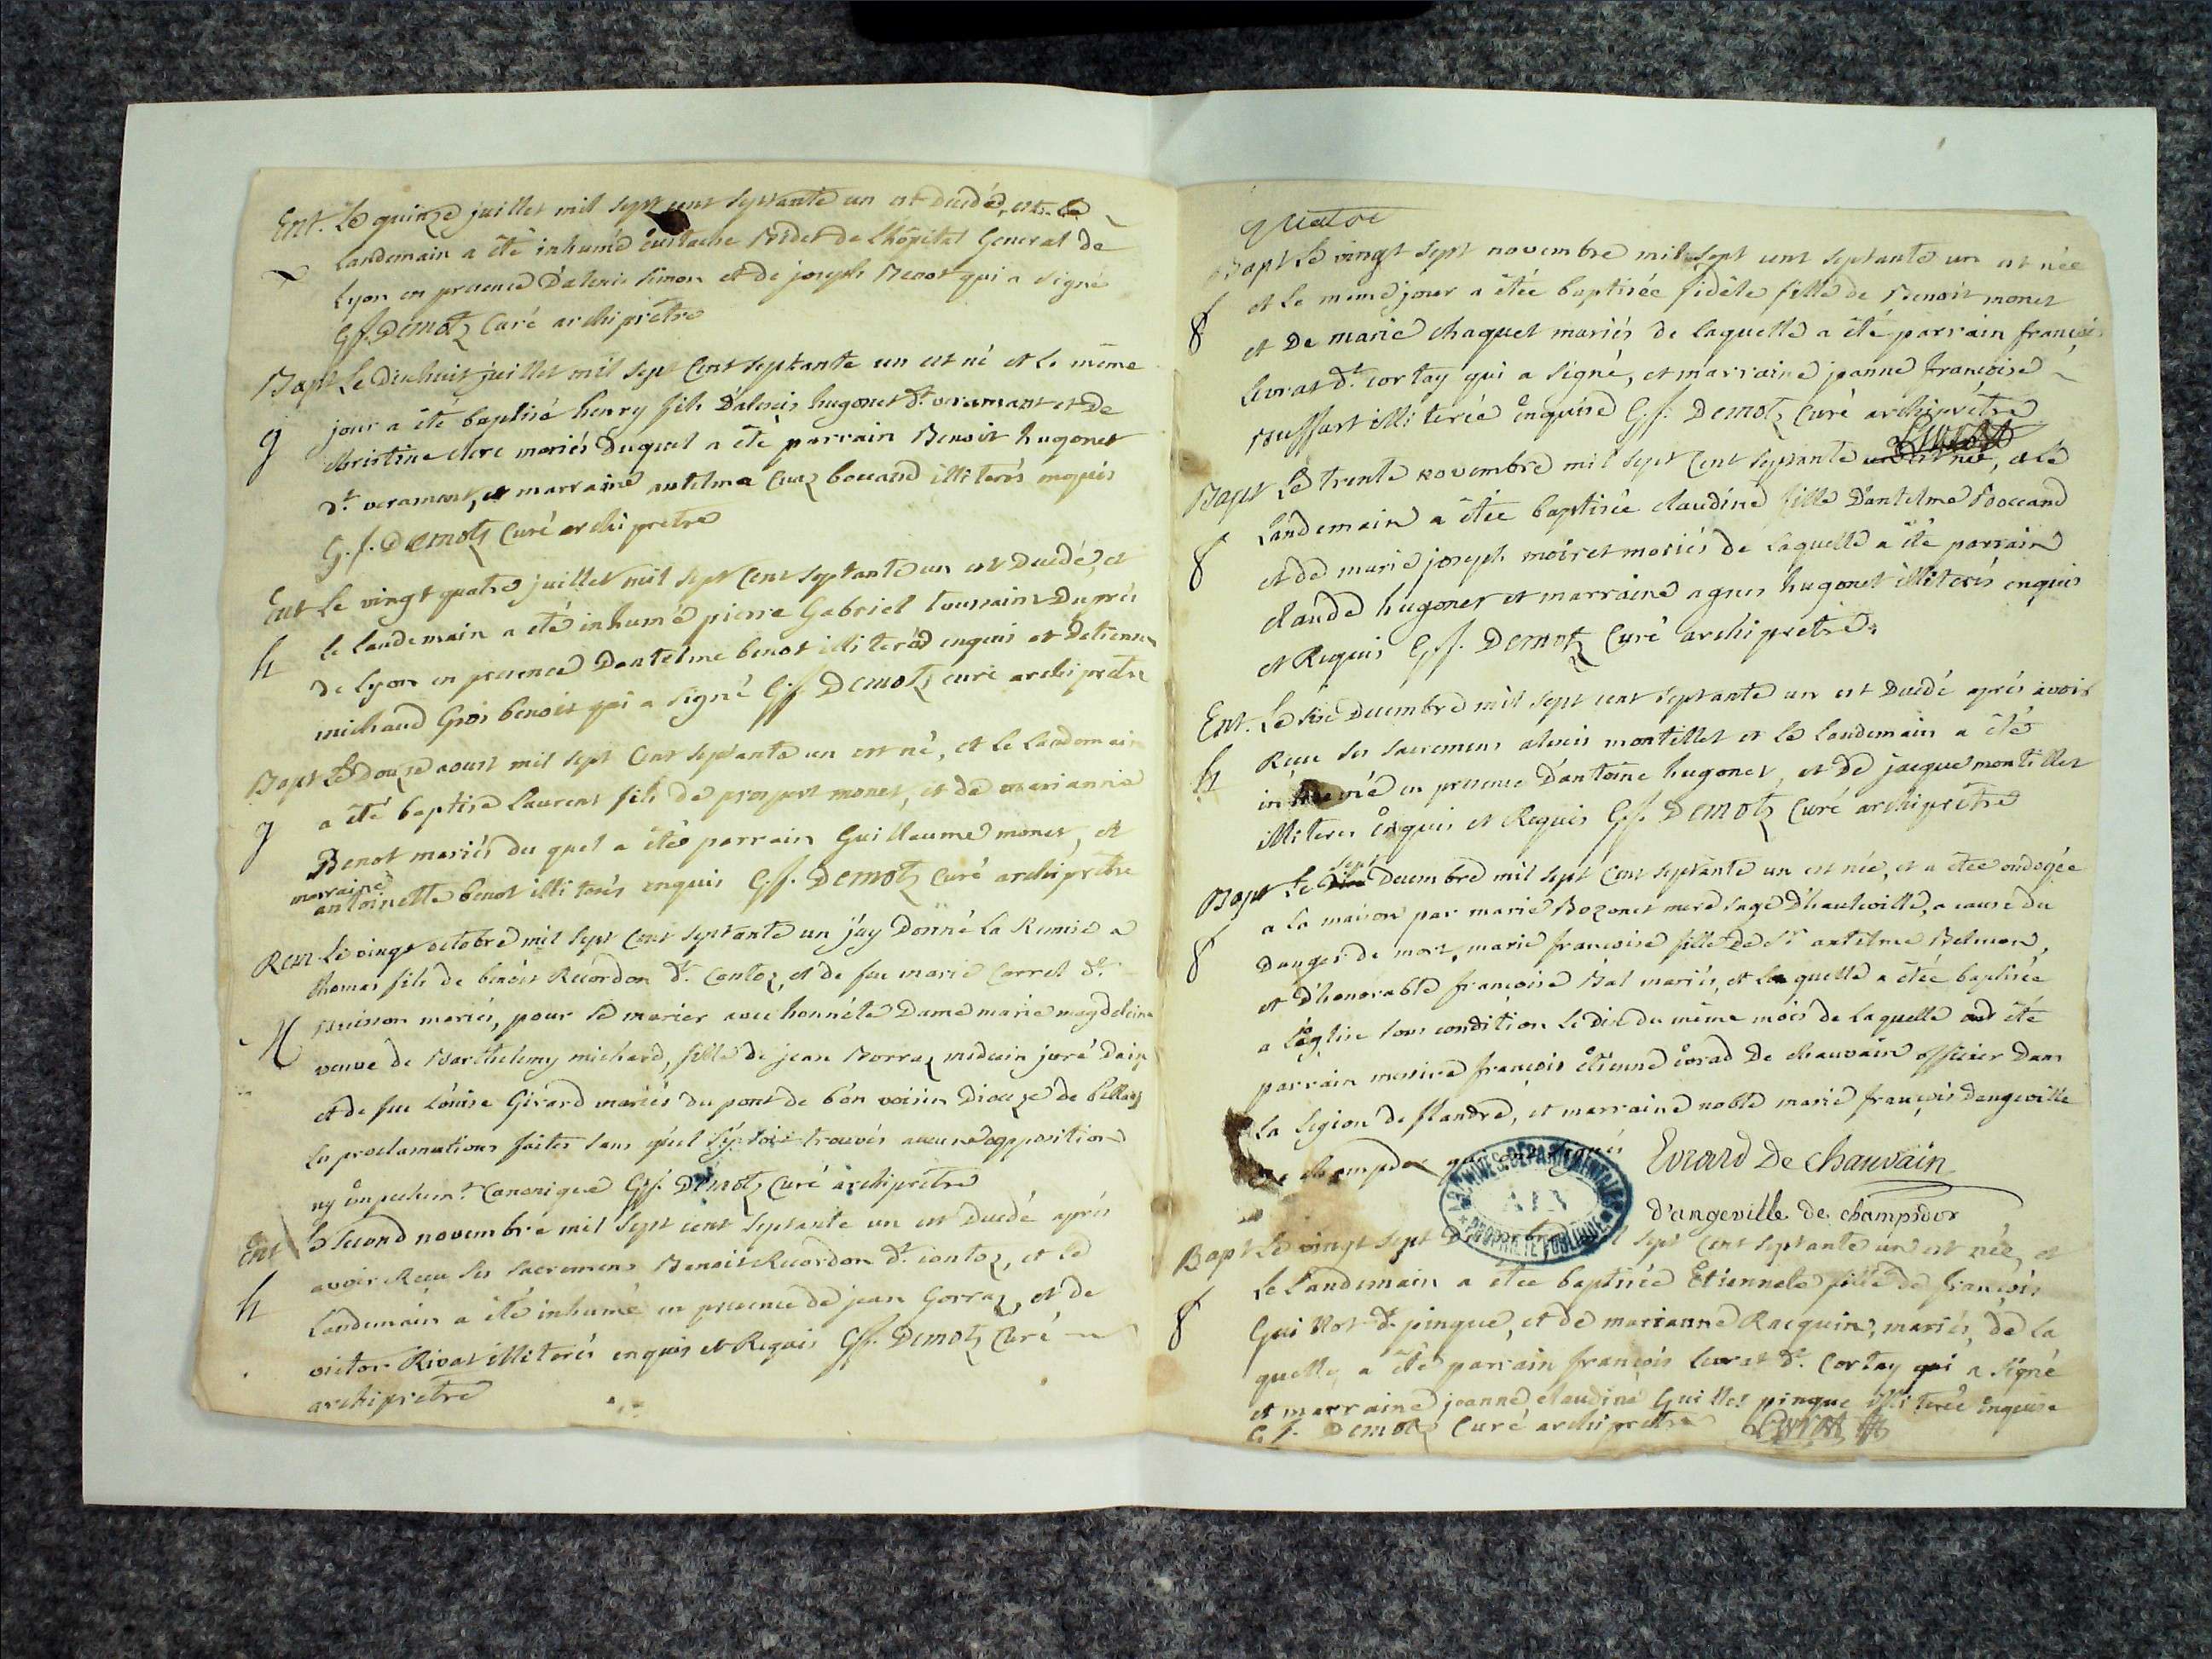 Ent. Le quinze juillet mil sept cent septante un est decédé, et le
landemain a été inhumé Eustache Bidet de l'hôpital General de
Lyon en presence d'alexis simon et de joseph Benot qui a signé
G.f. Demotz Curé archiprêtre
Bapt Le dixhuit juillet mil sept Cent septante un est né et le même
g jour a été baptisé henry fils d'alexis hugonet dt. veramant et de
christine clerc mariés duquel a été parrain Benoit hugonet
dt. veramont, et marraine antelma Cuaz bouand illiterés enquis
G.f. Demotz Curé archiprêtre
Ent Le vingt quatre juillet mil sept Cent septante un est decédé, et
h le landemain a été inhumé pierre Gabriel toussaint Duprés
de lyon en presence Dantelme benot illiteréd enquis et detienne
michaud Gros benoit qui a signé G.f. Demotz curé archiprêtre
Bapt Le douze aoust mil sept Cent septante un est né, et le landemain
g a été baptisé laurent fils de prospert monet, et de marianne
Benot mariés du quel a été parrain Guillaume monet, et
marraine
antoinette benot illiterés enquis G.f. Demotz Curé archiprêtre
Rem Le vingt octobre mil sept Cent septante un j'ay donné la Remise a
thomas fils de benoit Recordon dt. Contoz, et de feu marie Carrel dt.
Buisson mariés, pour se marier avec honnête Dame marie magdeleine
veuve de Barthelemy michard, fille de jean Borraz medecin juré
et de feu louise Girard mariés du pont de bon voisin Diocèze de bellay
la proclamations faites sans qu'il se soit trouvés aucune opposition
ny empechemt. Canonique G.f. Demotz Curé archiprêtre
Ent le second novembre mil sept cent septante un est decedé aprés
avoir Reçu ses sacremens Benoit Recordon dt. contoz, et le
h landemain a été inhumé en presence de jean Gorraz, et de
victor Rivat illiterés enquis et Requis G.f. Demotz Curé
archiprêtre
quatre
Bapt Le vingt sept novembre mil sept cent septante un est née
8 et le même jour a étée baptisée fidèle fille de Benoit monet
et De marie chaquet mariés de laquelle a été parrain françois
levrat dt. cortay qui a signé, et marraine jeanne françoise
Buffart illiterée enquise G.f. Demotz curé archiprêtre
Levrat
Bapt Le trente novembre mil sept Cent septante un est née, et le
8 landemain a étée baptisée claudine fille D'antelme Boccand
et de marie joseph moiret mariés de laquelle a été parrain
claude hugonet et marraine agnes hugonet illiterés enquis
et Requis G.f. Demotz Curé archiprêtre.
Ent. Le six Decembre mil sept cent septante un est decedé aprés avoir
h Reçu ses sacremens alexis montillet et le landemain a été
inhumé en presence d'antoine hugonet, et de jacque montillet
illiteres enquis et Requis G.f. Demotz Curé archiprêtre
sept
Bapt Le Decembre mil sept Cent septante un est née, et a étée ondoyée
a la maison par marie Bozonet mere sage D'hauteville, a cause du
8 danger de mort, marie françoise fille de Sr antelme Belmon,
et d'honorable françoise Bal mariés, et laquelle a étée baptisée
a l'église sous condition le dix du même mois de laquelle ont été
parrain messire françois étienne évrad De chauvain officier Dans
la legion de flandre, et marraine noble marie françois dangeville
de champdor qui ont signés Evrard De Chauvain
d'angeville de champdor
ARCHIVES DEPARTEMENTALES
AIN
PROPRIETE PUBLIQUE
Bapt Le vingt sept Decembre mil sept Cent septante un est née, et
le landemain a étée baptisée Etiennete fille de françois
8 Guillot dt. pingue, et de marianne Racquin, mariés, de la
quelle a été parrain françois levrat dt. Cortay qui a signé
et marraine jeanne claudine Guillot pingue illiterée enquise
G.f. Demotz Curé archiprêtre Levrat